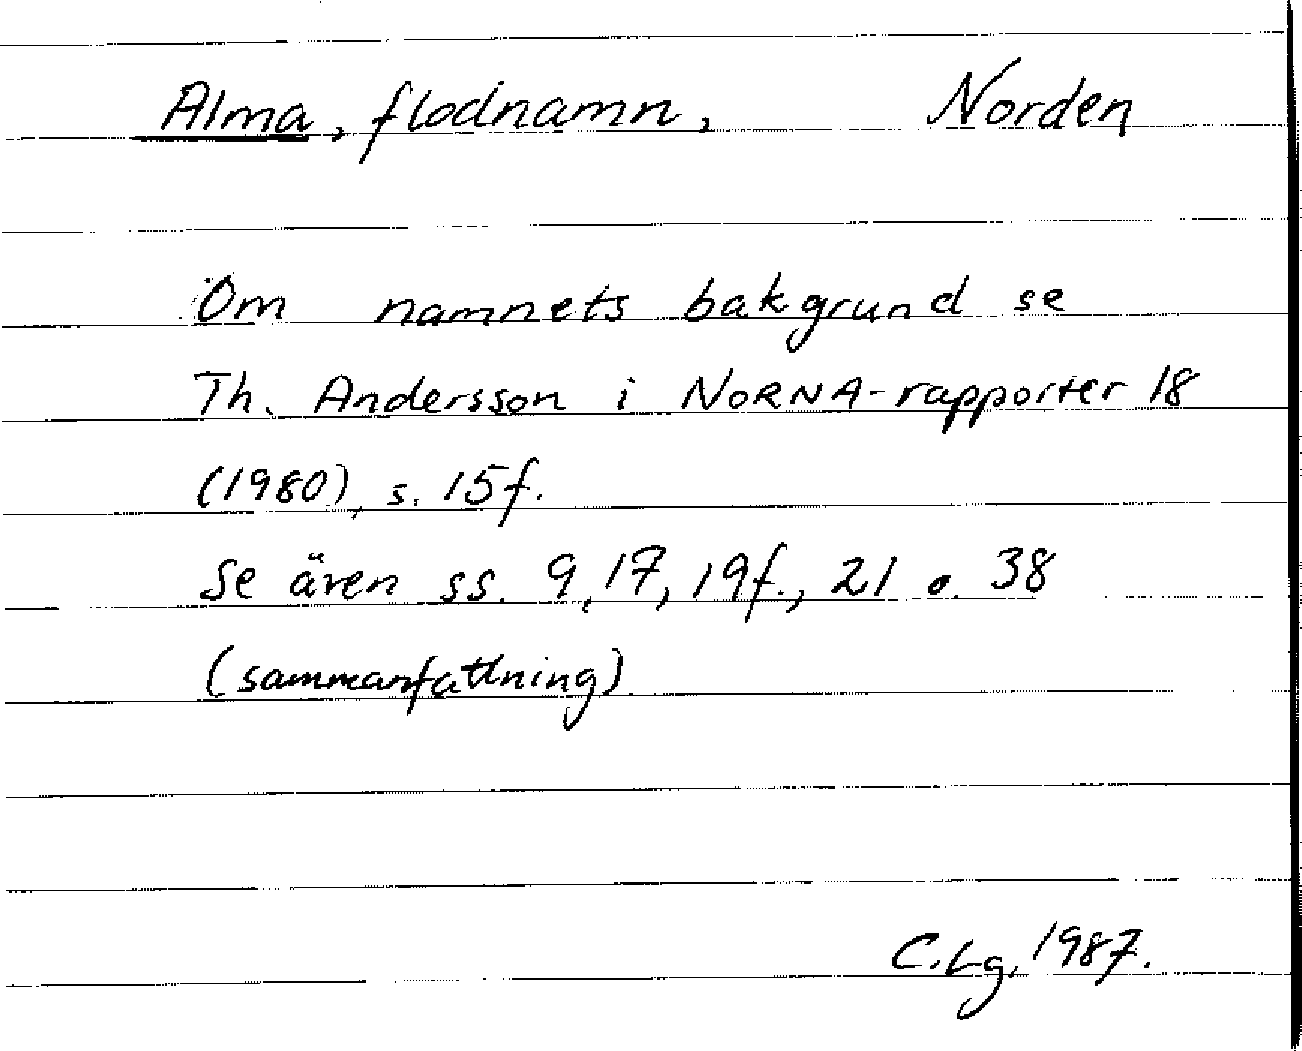 Alma, flodnamn, Norden
Om namnets bakgrund se
Th. Andersson i NORNA-rapporter 18
(1980), s. 15f.
Se även ss. 9, 17, 19f., 21 o. 38
(sammanfattning)
C. Lg, 1987.